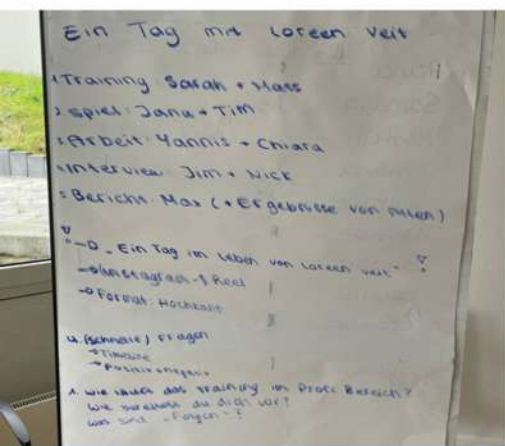 Ein Tag mit Loreen Veit
Training: Sarah + Mats
Spiel: Jana + Tim
Arbeit: Yannis + Chiara
Interview: Jim + Nick
Bericht: Max (+ Ergebnisse von allen)
"Ein Tag im Leben von Loreen Veit"
Instagram - Reel
Format: Hochkant
(schnelle) Fragen
Positiv + negativ
1. Wie läuft das Training im Profi Bereich?
Wie bereitest du dich vor?
Was sind "Folgen"?